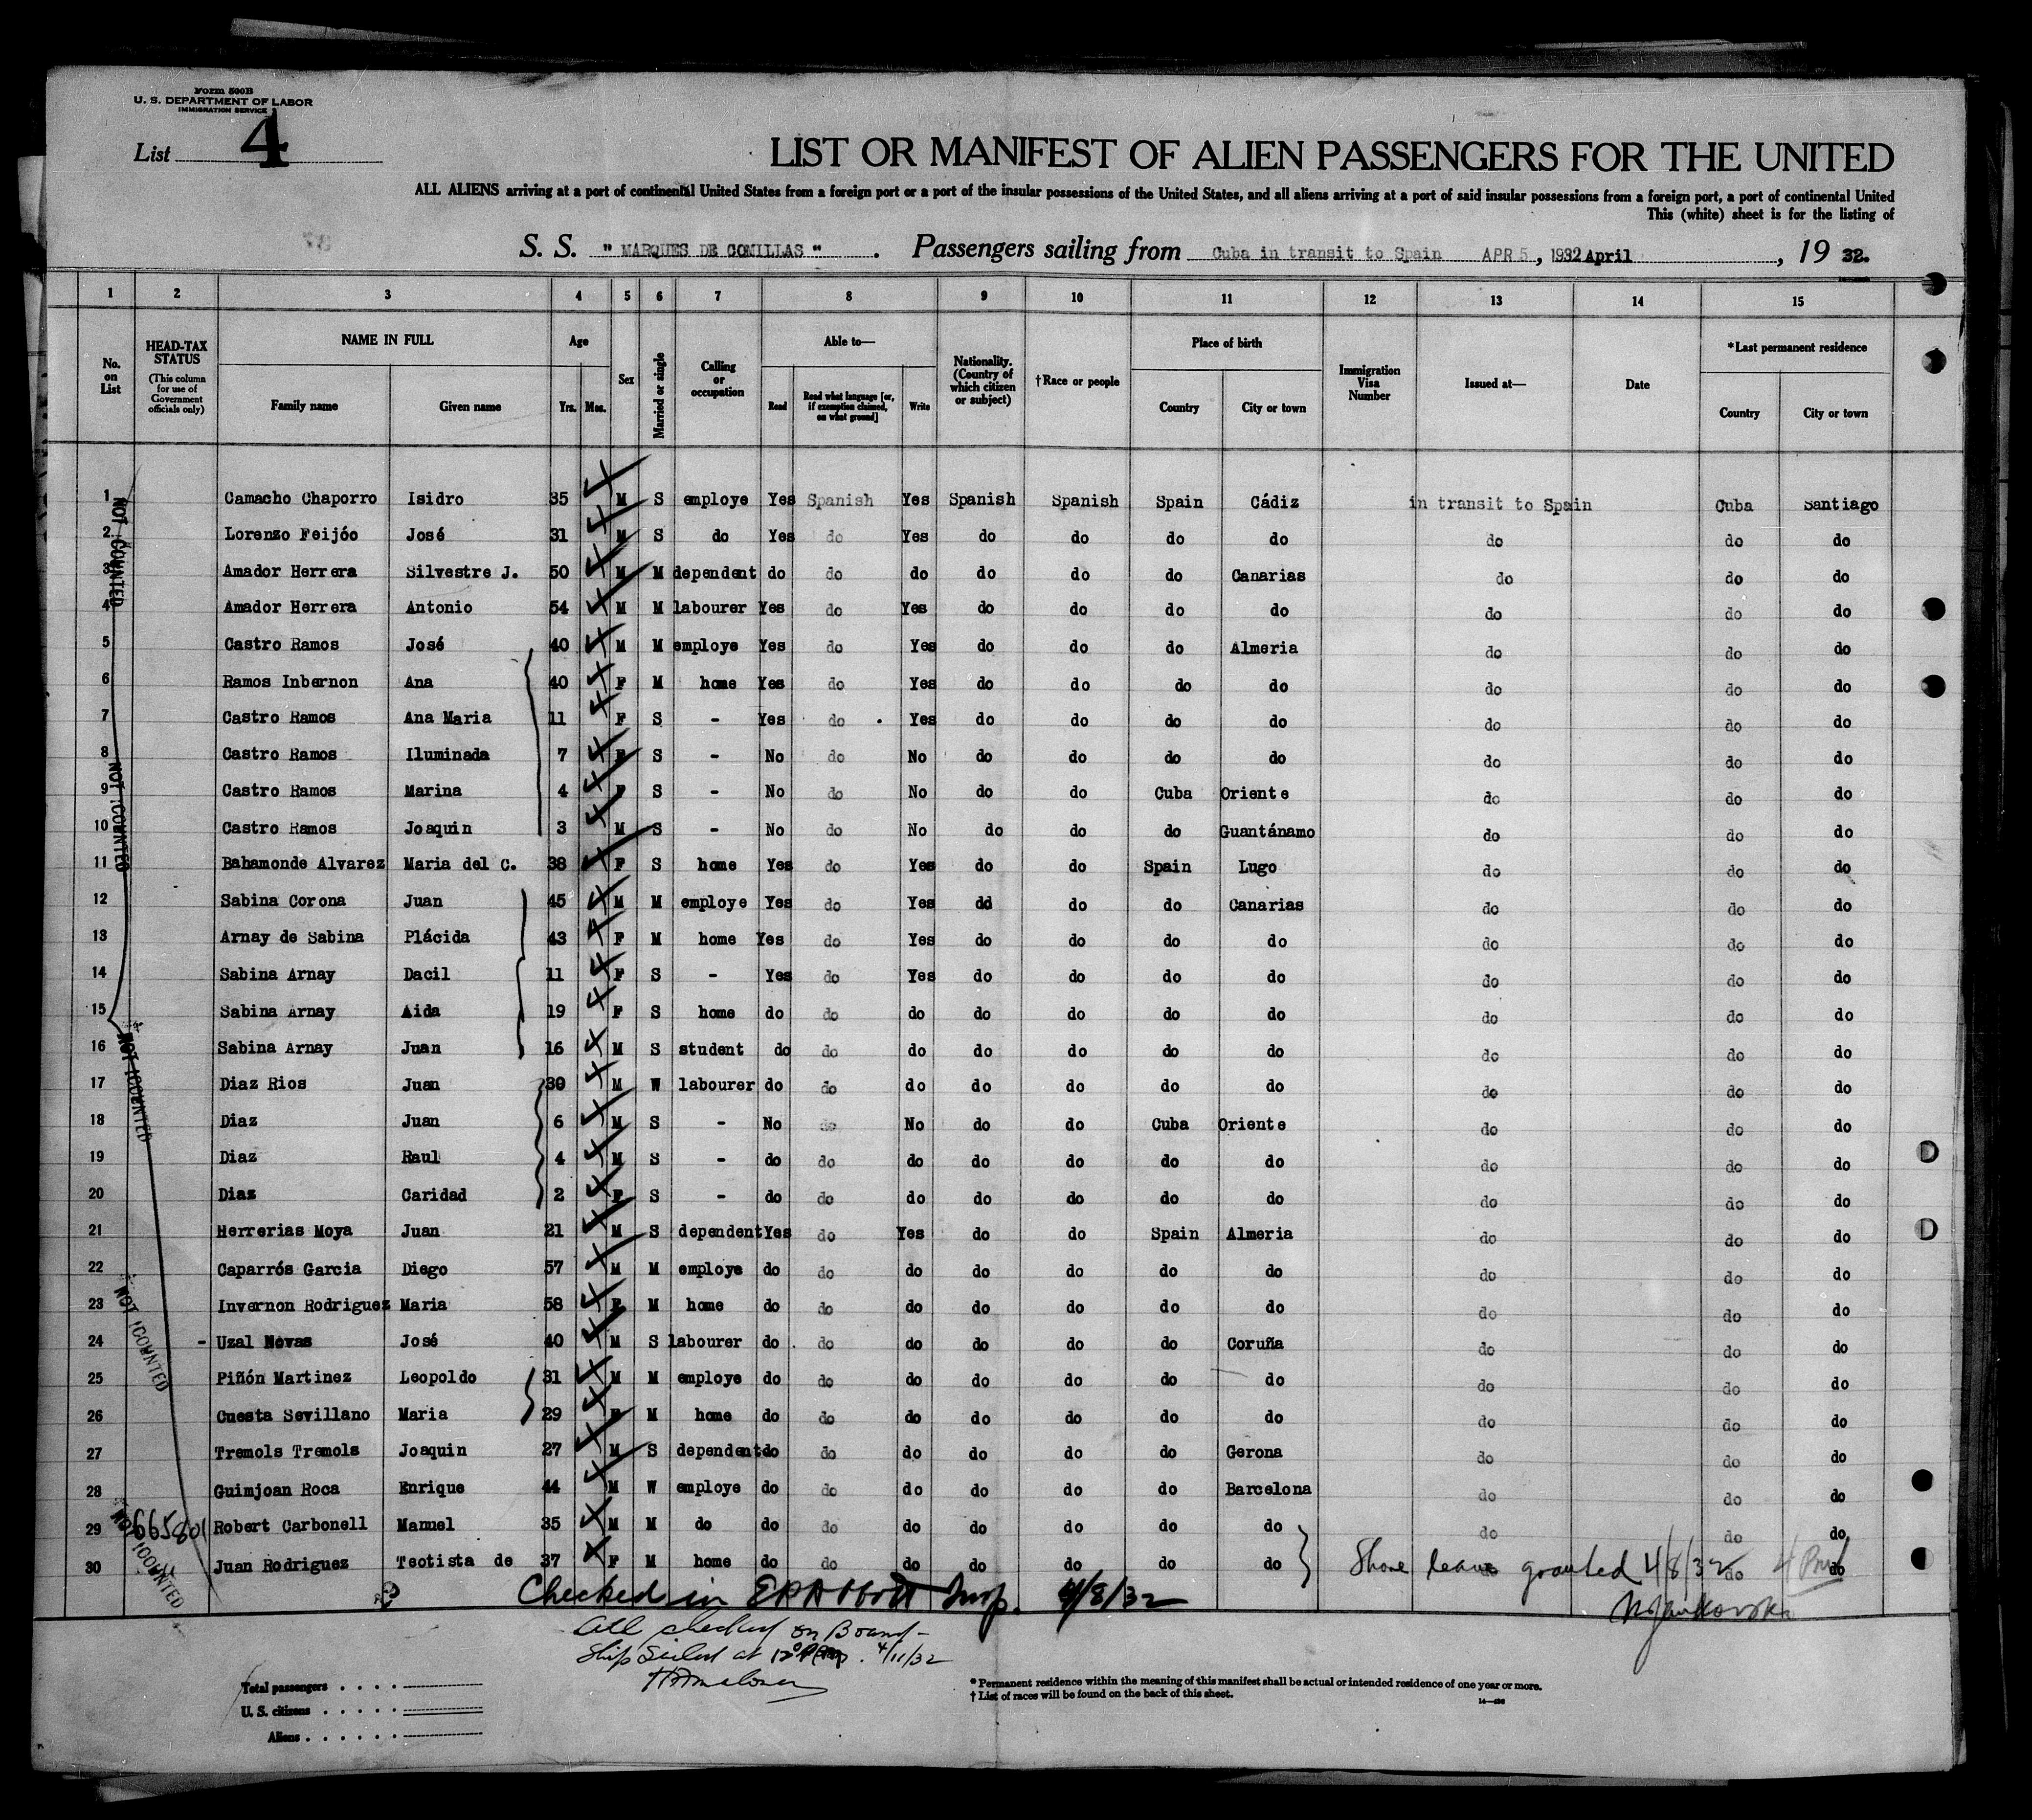 Form 500B
U. S. DEPARTMENT OF LABOR
IMMIGRATION SERVICE
List 4
LIST OR MANIFEST OF ALIEN PASSENGERS FOR THE UNITED
ALL ALIENS arriving at a port of continental United States from a foreign port or a port of the insular possessions of the United States, and all aliens arriving at a port of said insular possessions from a foreign port, a port of continental United
This (white) sheet is for the listing of
S. S. " MARQUES DE COMILLAS " . Passengers sailing from Cuba in transit to Spain APR 5, 1932 April , 19 32.
1 2 3 4 5 6 7 8 9 10 11 12 13 14 15
No. on List HEAD-TAX STATUS (This column for use of Government officials only) NAME IN FULL Family name Given name Age Yrs. Mos. Sex Married or single Calling or occupation Able to— Read Read what language [or, if exemption claimed, on what ground] Write Nationality. (Country of which citizen or subject) †Race or people Place of birth Country City or town Immigration Visa Number Issued at— Date *Last permanent residence Country City or town
1 Camacho Chaporro Isidro 35 M S employe Yes Spanish Yes Spanish Spanish Spain Cádiz in transit to Spain Cuba Santiago
2 Lorenzo Feijóo José 31 M S do Yes do Yes do do do do do do do
3 Amador Herrera Silvestre J. 50 M M dependent do do do do do do Canarias do do do
4 Amador Herrera Antonio 54 M M labourer Yes do Yes do do do do do do do
5 Castro Ramos José 40 M M employe Yes do Yes do do do Almeria do do do
6 Ramos Inbernon Ana 40 F M home Yes do Yes do do do do do do do
7 Castro Ramos Ana Maria 11 F S - Yes do Yes do do do do do do do
8 Castro Ramos Iluminada 7 F S - No do No do do do do do do do
9 Castro Ramos Marina 4 F S - No do No do do Cuba Oriente do do do
10 Castro Ramos Joaquin 3 M S - No do No do do do Guantánamo do do do
11 Bahamonde Alvarez Maria del C. 38 F S home Yes do Yes do do Spain Lugo do do do
12 Sabina Corona Juan 45 M M employe Yes do Yes dd do do Canarias do do do
13 Arnay de Sabina Plácida 43 F M home Yes do Yes do do do do do do do
14 Sabina Arnay Dacil 11 F S - Yes do Yes do do do do do do do
15 Sabina Arnay Aida 19 F S home do do do do do do do do do do
16 Sabina Arnay Juan 16 M S student do do do do do do do do do do
17 Diaz Rios Juan 30 M W labourer do do do do do do do do do do
18 Diaz Juan 6 M S - No do No do do Cuba Oriente do do do
19 Diaz Raul 4 M S - do do do do do do do do do do
20 Diaz Caridad 2 F S - do do do do do do do do do do
21 Herrerias Moya Juan 21 M S dependent Yes do Yes do do Spain Almeria do do do
22 Caparrós Garcia Diego 57 M M employe do do do do do do do do do do
23 Invernon Rodriguez Maria 58 F M home do do do do do do do do do do
24 - Uzal Novas José 40 M S labourer do do do do do do Coruña do do do
25 Piñón Martinez Leopoldo 31 M M employe do do do do do do do do do do
26 Cuesta Sevillano Maria 29 F M home do do do do do do do do do do
27 Tremols Tremols Joaquin 27 M S dependent do do do do do do Gerona do do do
28 Guimjoan Roca Enrique 44 M W employe do do do do do do Barcelona do do do
29 665801 Robert Carbonell Manuel 35 M M do do do do do do do do do do do
30 Juan Rodriguez Teotista de 37 F M home do do do do do do do do do do
NOT COUNTED
NOT COUNTED
NOT COUNTED
NOT COUNTED
NOT COUNTED
Shore leave granted 4/8/32 4 Pm
Checked in Insp. 4/8/32
All checked on Board -
Ship Sailed at 12 4/11/32
Total passengers . . . .
U. S. citizens . . . . .
Aliens . . . . . .
* Permanent residence within the meaning of this manifest shall be actual or intended residence of one year or more.
† List of races will be found on the back of this sheet.